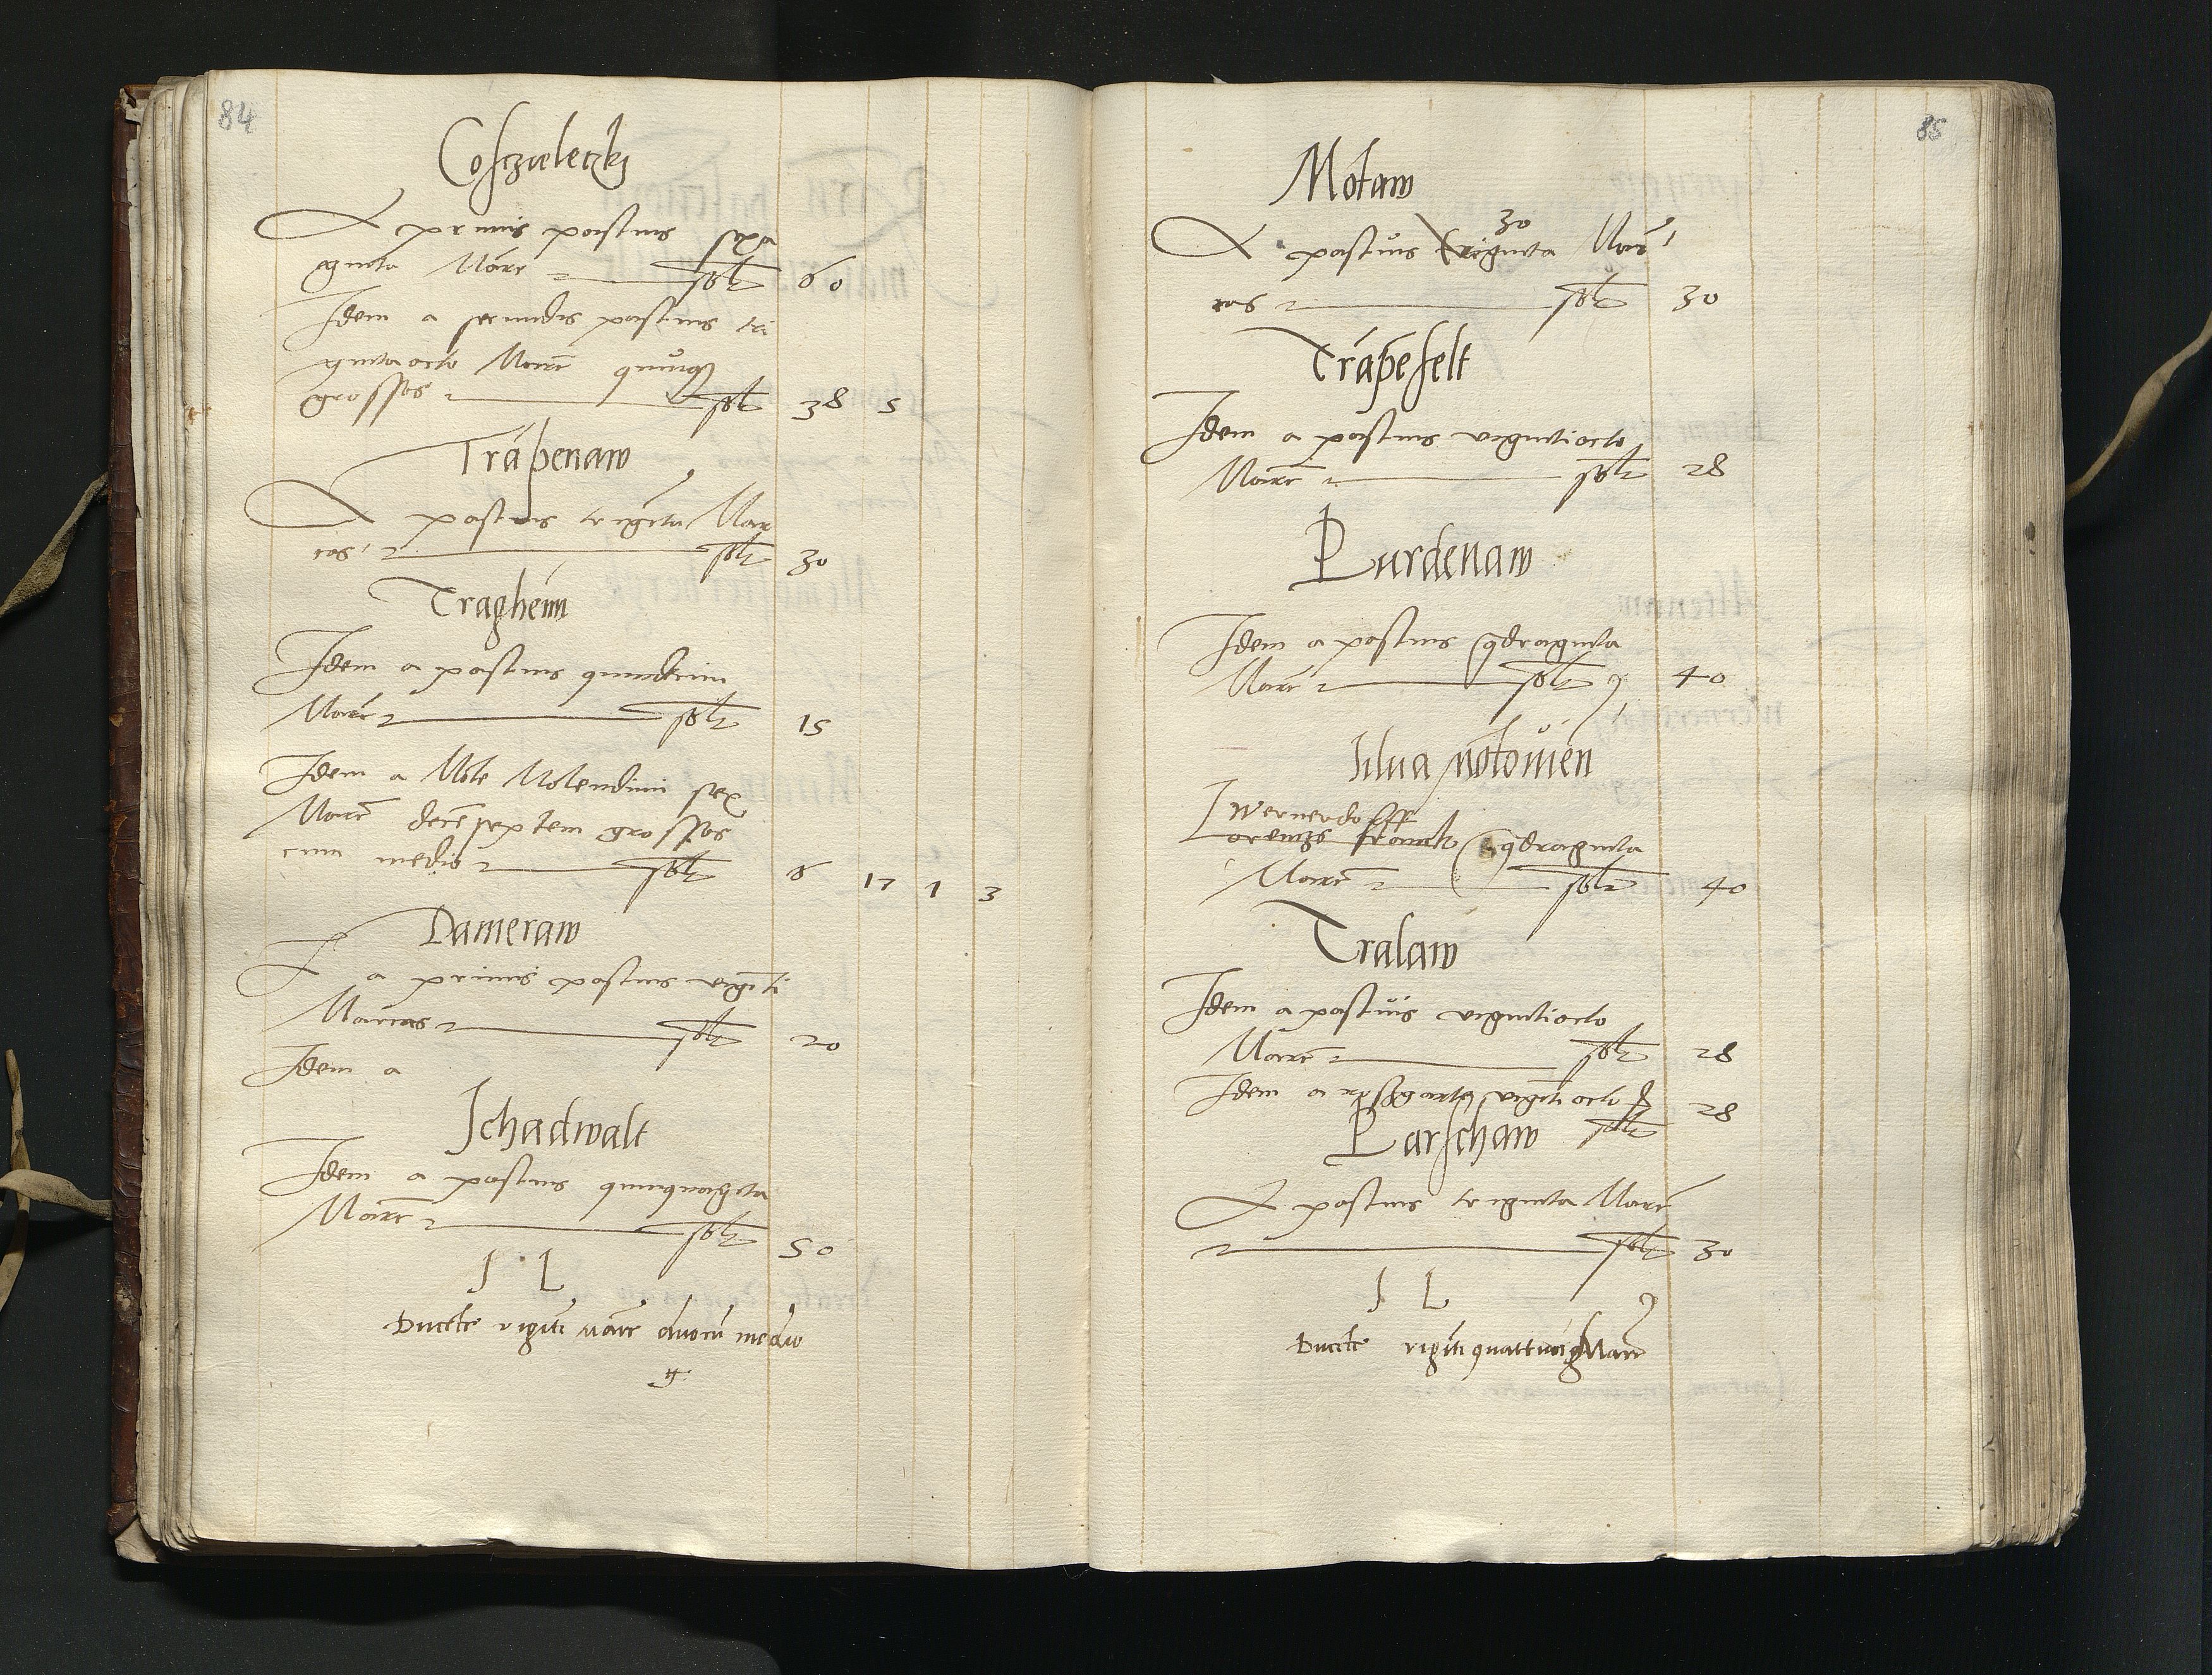 84
Cosczieleczkj
A primis pascuis sexa
ginta Marc solt 60
Idem a secundis pascuis tri
gintaocto Marc quinqz
grossos solt 38 5
Trapenaw
A pascuis triginta Mar
cas, solt 30
Tragheim
Idem a pascuis quindecim
Marc solt 15
Idem a Mole Molendini sex
Marc decē septem grossos
cum medio solt 6 17 1 3
Dameraw
a primis pascuis viginti
Marcas solt 20
Idem a
Schadwalt
Idem a pascuis quinquaginta
Marc solt 50
S L
Ducēte vigīti marc duocū medio
g
85
Motaw
30
A pascuis triginta Mar
cas solt 30
Trapefelt
Idem a pascuis vigintiocto
Marc solt 28
Purdenaw
Idem a pascuis qdraginta
Marc solt 40
Silua
Wernerdorff
qdraginta
Marc solt 40
Tralaw
Idem a pascuis vigintiocto
Marc solt 28
Idem a rossgarth vigīti octo 28
Parschaw solt
A pascuis triginta Marc
solt 30
S L
Ducēte vigīti quattuor Marc